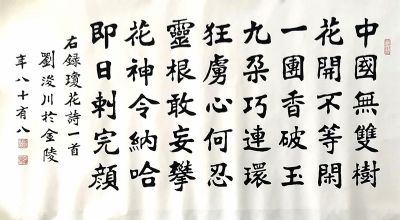 中國無雙樹
花開不等閑
一團香破玉
九朶巧連環
狂虜心何忍
靈根敢妄攀
花神令納哈
即日剌完顔
右錄瓊花詩一首
劉浚川於金陵
年八十有八